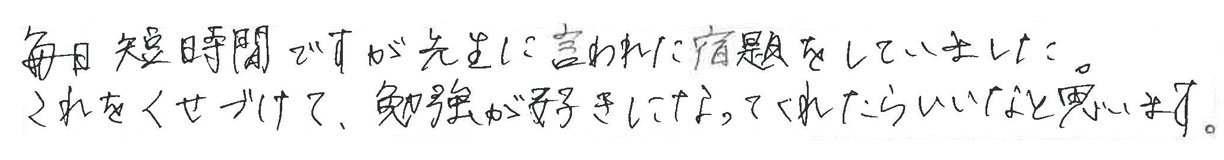 毎日短時間ですが先生に言われた宿題をしていました。
これをくせづけて、勉強が好きになってくれたらいいなと思います。